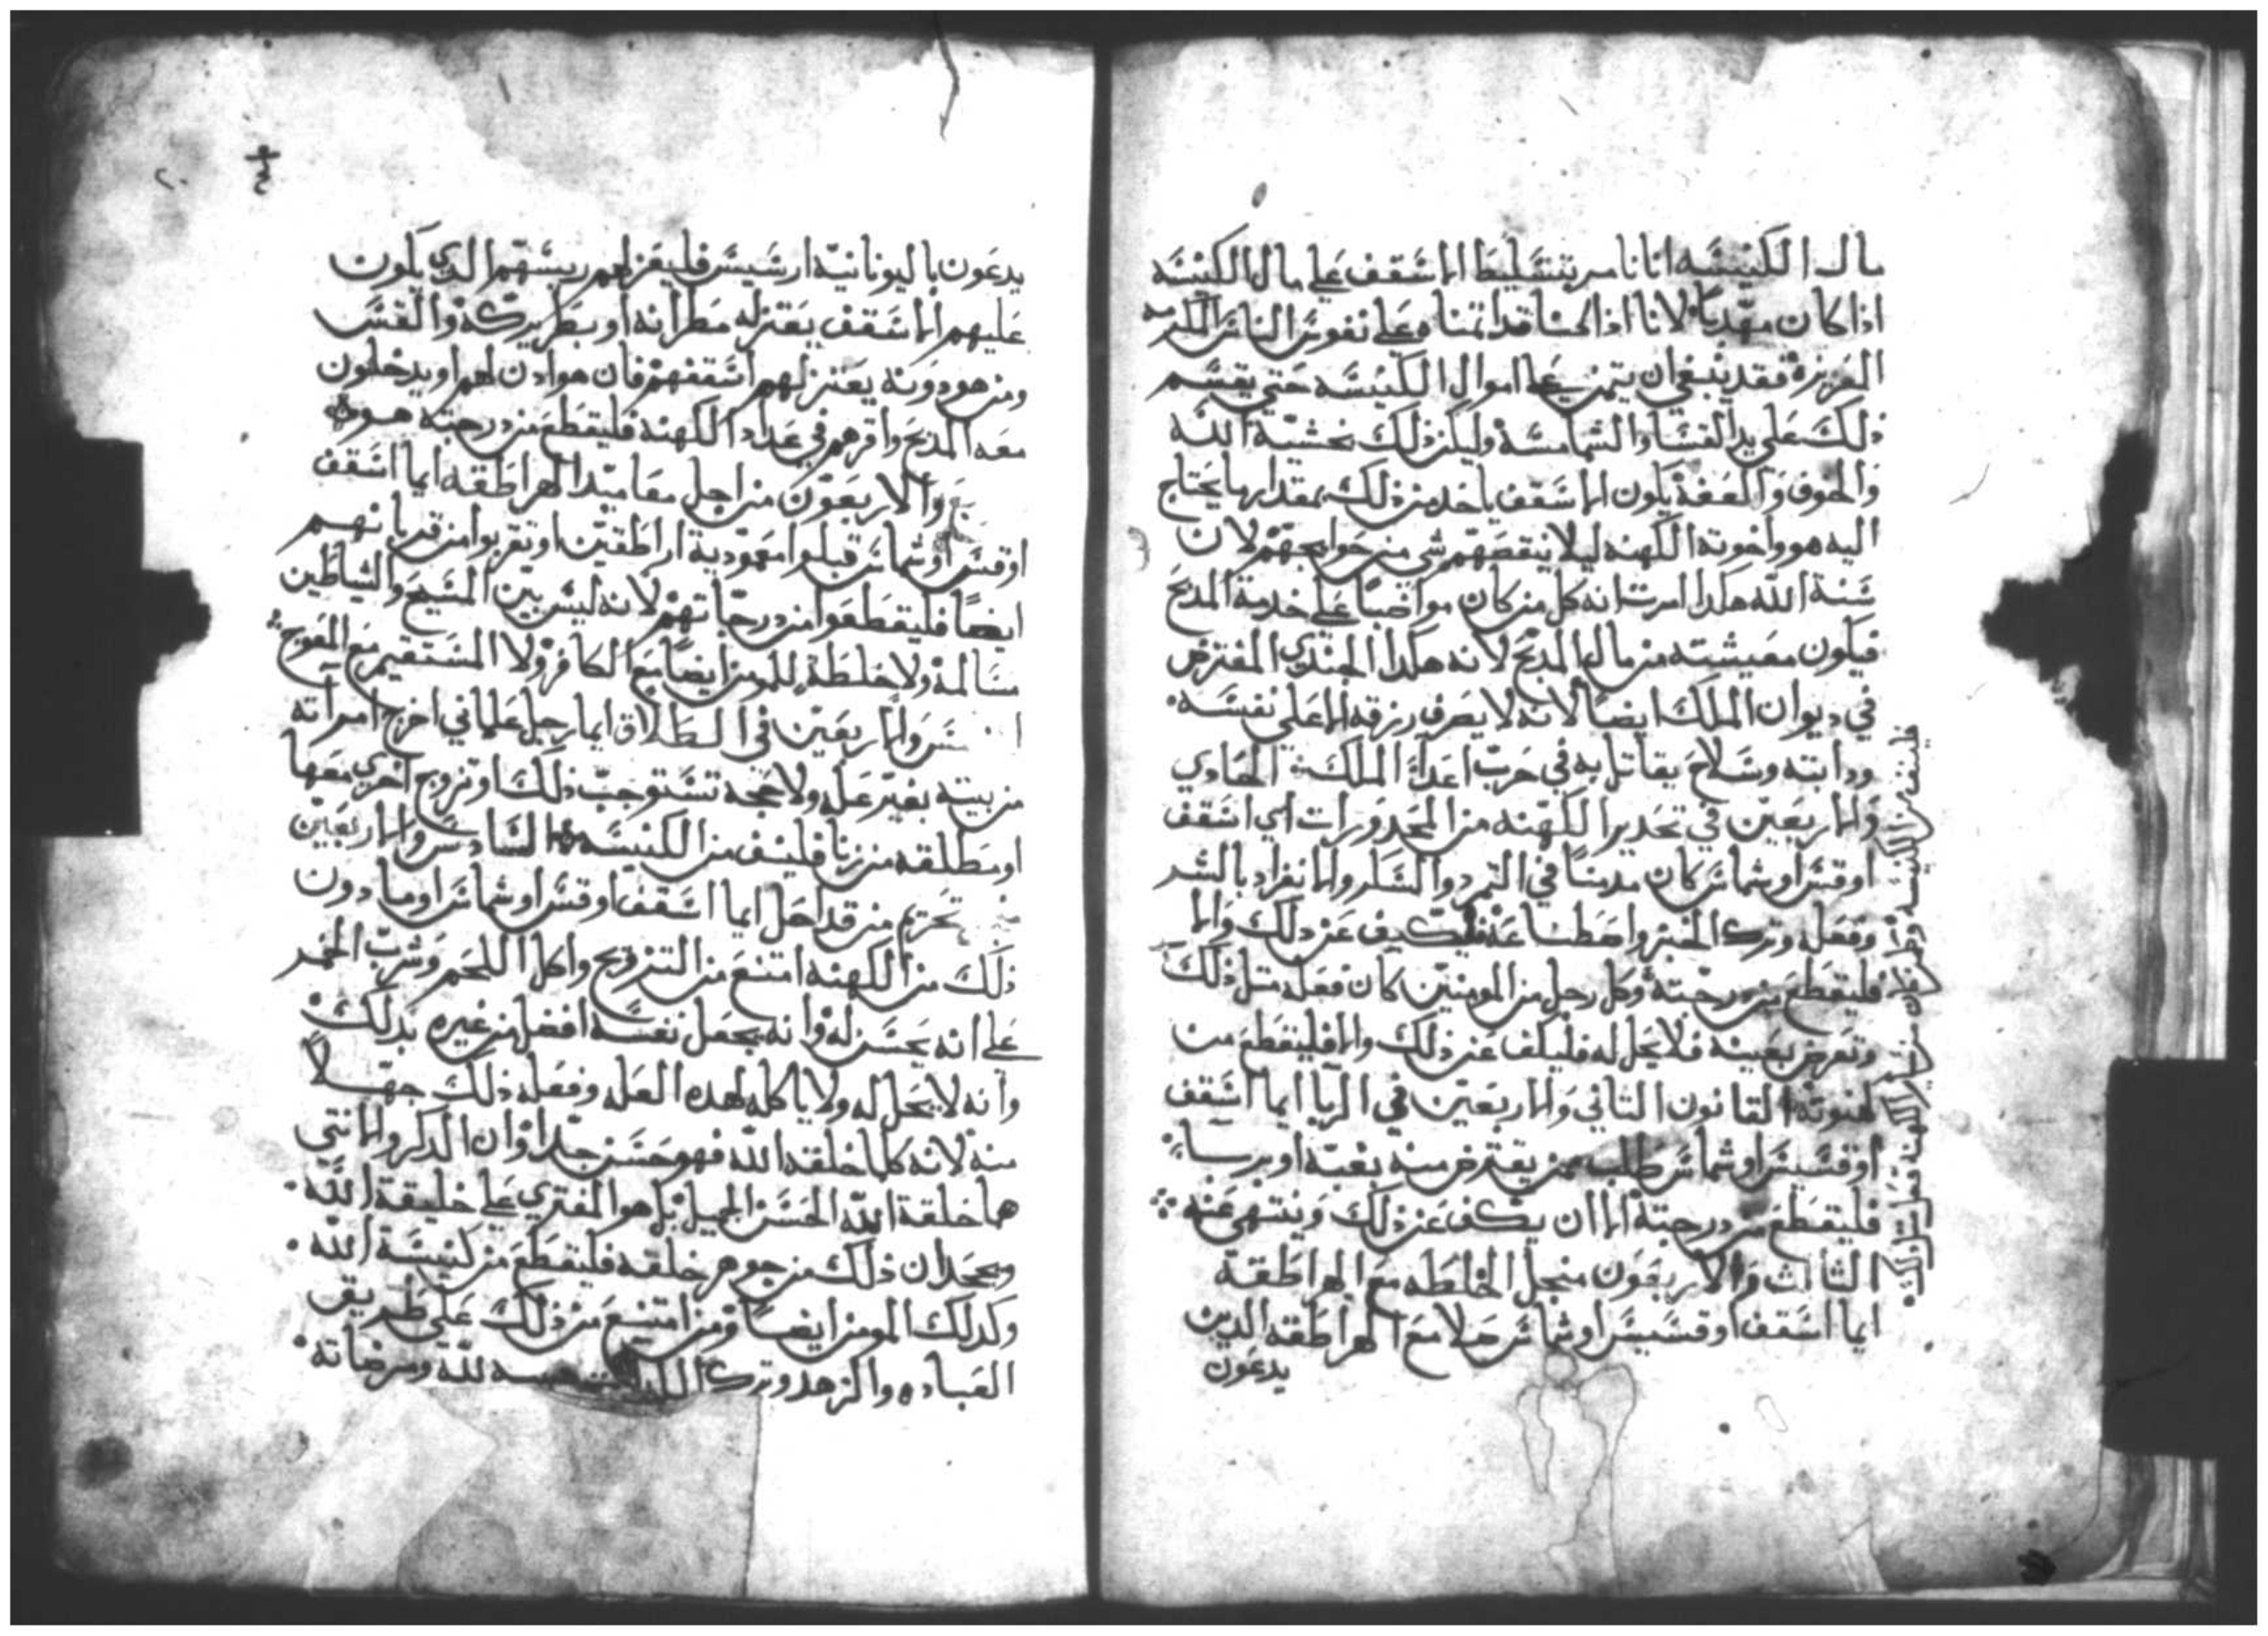 مال الكنيسه اننا نامر بتسليط الاسقف علي مال الكنيسه
اذا كان مهديا لانا اذا كنا قد امناه علي نفوس الناس المكرمه
العزيزه فقد ينبغي ان يتمن علي اموال الكنيسه حتي يقسم
ذلك علي يد القسا والشمامسه وليكن ذلك بخشية الله
والخوف والعفة يكون الاسقف ياخد من ذلك بمقدار ما يحتاج
اليه هو واخوته الكهنه ليلا ينقصهم شي من حوايجهم لان
سنة الله هكدا امرت انه كل من كان مواضبا علي خدمة المدبح
فيكون معيشته من مال المدبح لانه هكدا الجندي المفترض
في ديوان الملك ايضا لانه لا يصرف رزقه الا علي نفسه
ودابته وسلاح يقاتل به في حرب اعدا الملك الحادي
والاربعين في تحدير الكهنه من المحدورات اي اسقف
او قس او شماس كان مدمنا في النرد والسكر والانفراد بالشر
وفعله وترك الخير واخطا عنه فليكف عن دلك والا
فليقطع من درجته وكل رجل من المومنين كان فعله متل ذلك
وتعرض بعينه فلا يحل له فليكف عن ذلك والا فليقطع من
كهنوته القانون الثاني والاربعين في الربا ايما اسقف
او قسيس او شماس طلب ممن يقترض منه
فليقطع من درجته الا ان يكف عن ذلك وينتهي عنه
الثالث والاربعون منجل الخلطه مع الهراطقة
ايما اسقف او قسيس او شماس صلا مع الهراطقه الدين
يدعون
يدعون باليونانية ارسيس فليعزلهم ريسهم الدي يكون
عليهم الاسقف يعتزله مطرانه او بطريركه والقس
ومن هو دونه يعتزلهم اسقفهم فان هو ادن لهم او يدخلون
معه المدبح واقرهم في عداد الكهنه فليقطع من درجته هو
والاربعون من اجل معاميد الهراطقه ايما اسقف
او قس او شماس قبلوا معمودية اراطقين او تقربوا من قربانهم
ايضا فليقطعوا من درجاتهم لانه ليس بين المسيح والشياطين
مسالمة ولا خلطة للمومن ايضا مع الكافر ولا المستقيم مع المعوج
والاربعين في الطلاق ايما رجل علماني اخرج امراته
من بيته بغير عله ولا حجه تستوجب ذلك او تزوج اخري معها
او مطلقه من زنا فلينف من الكنيسه السادس والاربعين
تحريم من قد احل ايما اسقف او قس او شماس او ما دون
ذلك من الكهنه امتنع من التزويج واكل اللحم وشرب الخمر
علي انه يحسن له وانه يجعل نفسه افضل من غيره بدلك
وانه لا يحل له ولا ياكله لهده العله وفعله ذلك جهلا
منه لانه كلما خلقه الله فهو حسن جدا وان الدكر والانتي
هما خلقة الله الحسن الجميل بل هو المفتري علي خليقة الله
ويجحد ان ذلك من جوهر خلقه فليقطع من كنيسة الله
وكدلك المومن ايضا ومن امتنع من ذلك علي طريق
العباده والزهد وترك لله ومرضاته